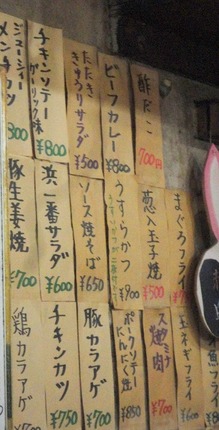 酢だこ
700円
ビーフカレー
¥800
たたき
きゅうりサラダ
¥500
チキンソテー
ガーリック味
¥800
ジューシィー
メンチカツ
800
まぐろフライ
葱入玉子焼
¥500
うすらかつ
¥900
ソース焼そば
¥650
浜一番サラダ
¥600
豚生姜焼
¥700
玉ネギフライ
¥600
¥700
ポークソテー
にんにく焼
¥850
豚カラアゲ
¥700
チキンカツ
¥750
鶏カラアゲ
¥700